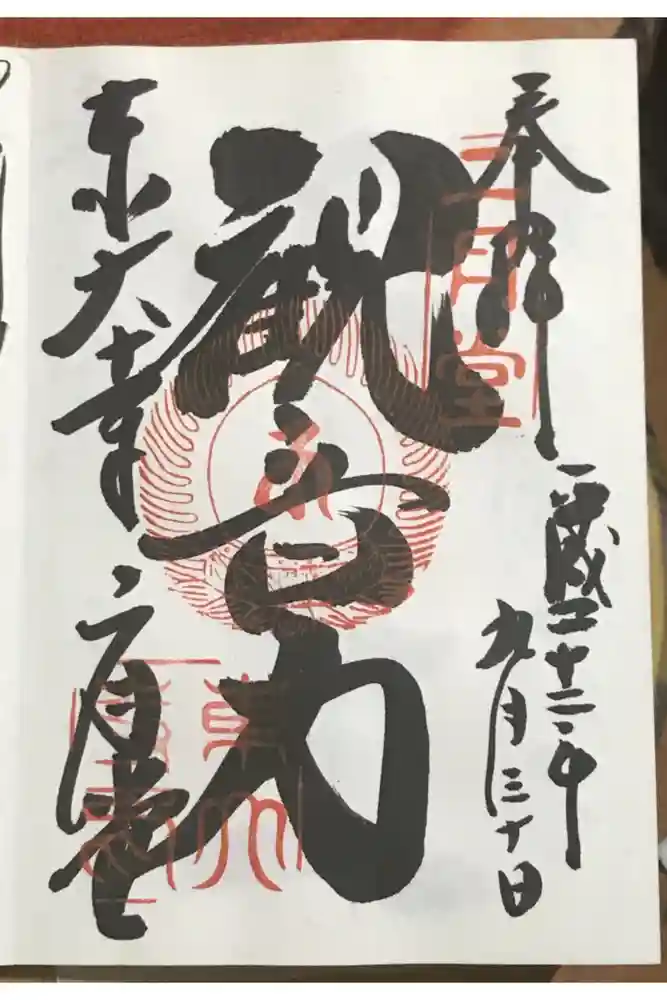 奉拝
二月堂
平成二十二年
九月三十日
観音力
東大寺
二月堂